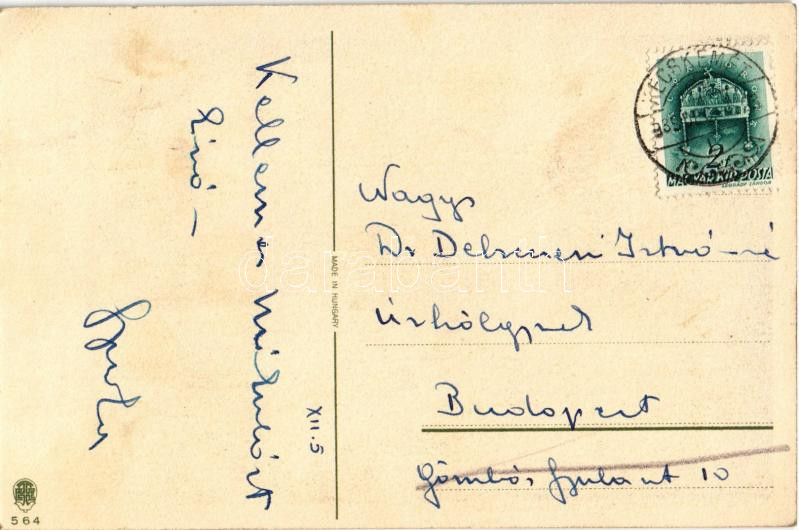 Kellemes Mikulást
kívá—
Gyula
XII. 5
MADE IN HUNGARY
564
KECSKEMÉT
2f
MAGYAR KIR. POSTA
LÉGRÁDY SÁNDOR
Nagys
Dr Debreceni Istvánné
úrhölgynek
Budapest
Gömbös Gyula út 10
darabanth